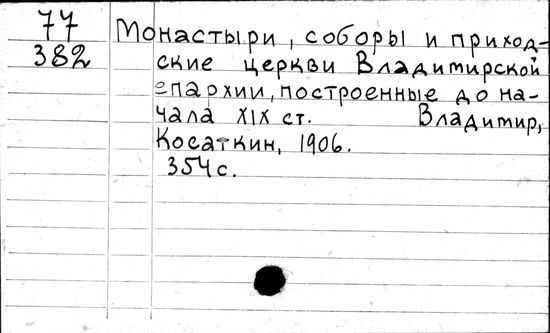 77
382
Монастыри, соборы и приход-
ские церкви Владимирской
епархии, построенные до на-
чала XIX ст. Владимир,
Косаткин, 1906.
354 с.